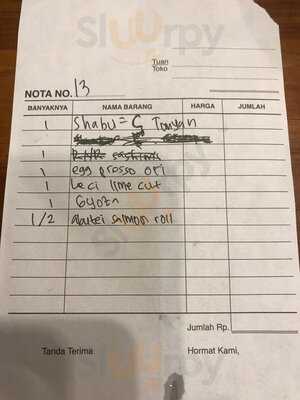 Slurpy
Tuan
Toko
NOTA NO. 13
BANYAKNYA NAMA BARANG HARGA JUMLAH
1 Shabu = C
1 sashimi
1 egg prosso ori
1 Leci lime cut
1 Gyoza
1/2 salmon roll
Jumlah Rp.
Tanda Terima Hormat Kami,